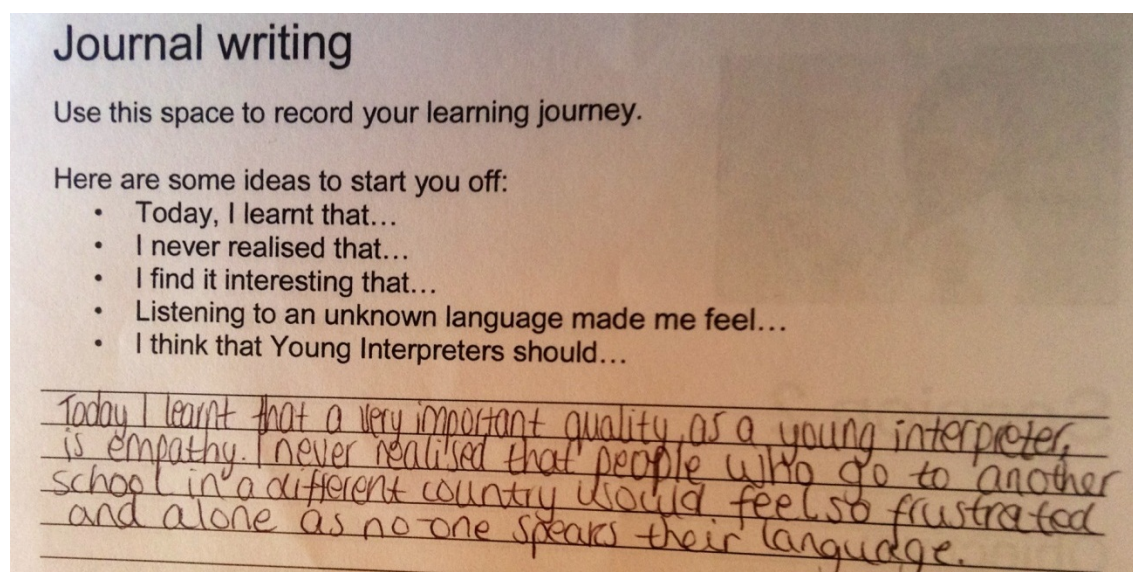 Journal writing
Use this space to record your learning journey.
Here are some ideas to start you off:
• Today, I learnt that…
• I never realised that…
• I find it interesting that…
• Listening to an unknown language made me feel…
• I think that Young Interpreters should…
Today I learnt that a very important quality, as a young interpreter,
is empathy. I never realised that people who go to another
school in a different country would feel so frustrated
and alone as no-one speaks their language.